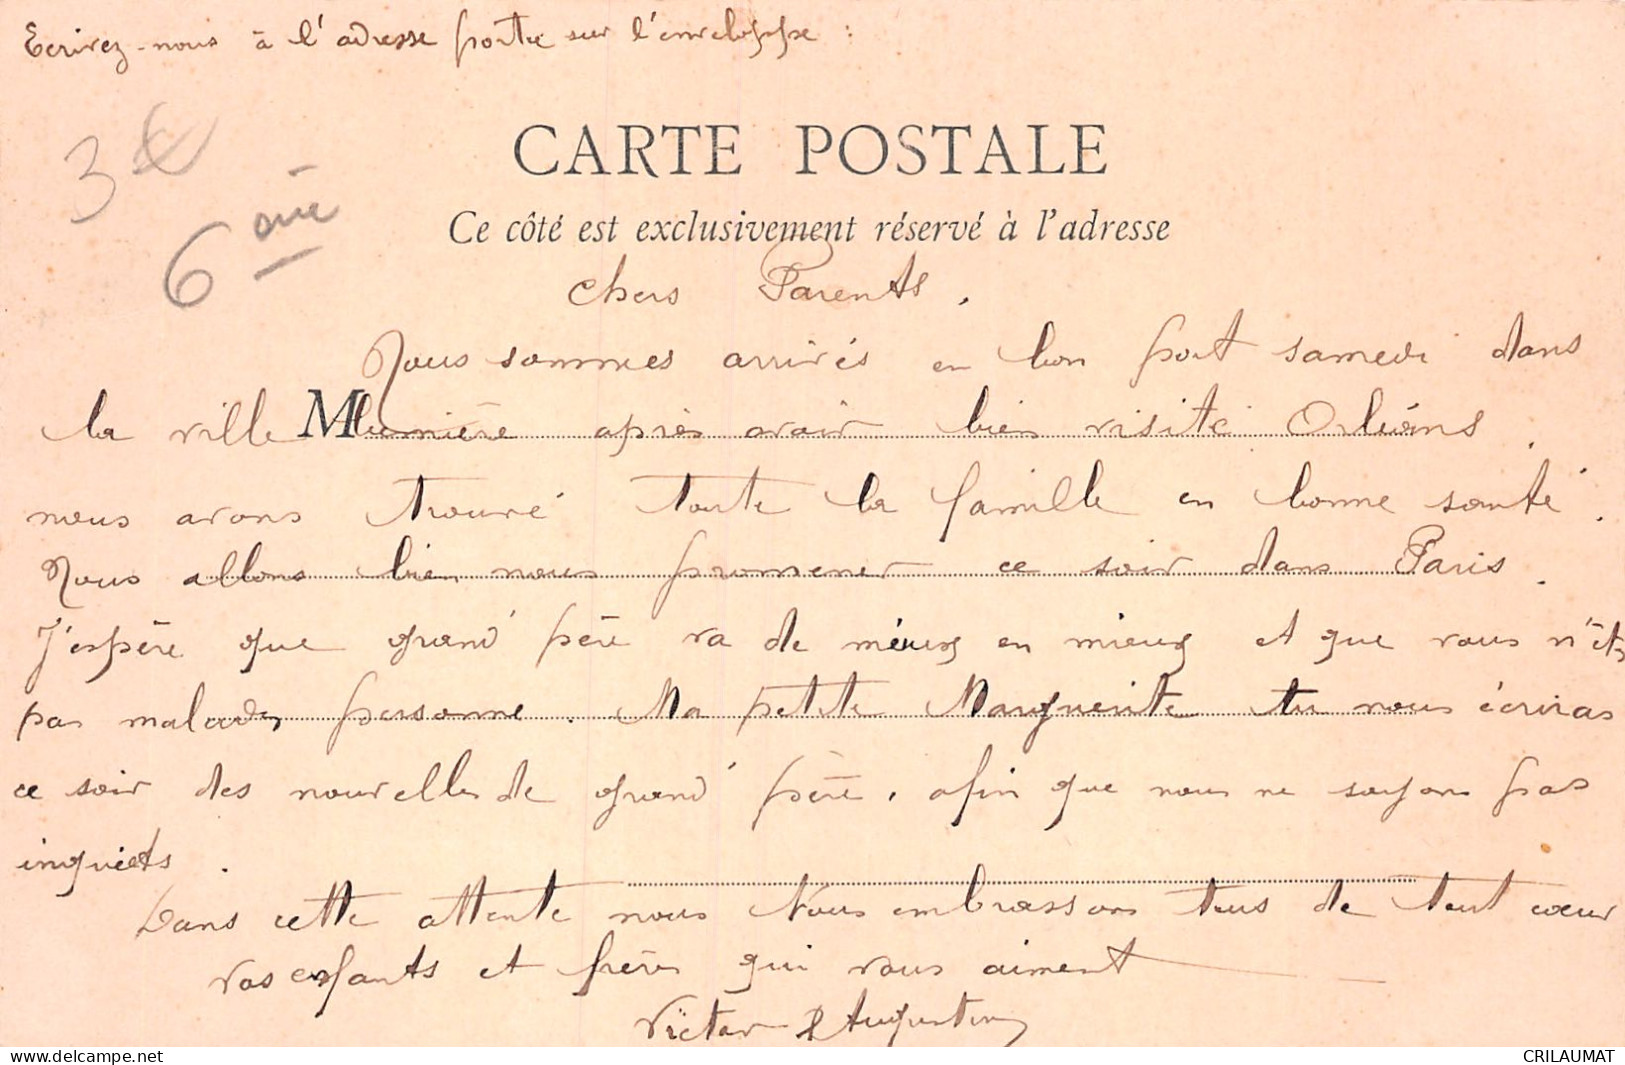 Ecrivez-nous à l'adresse portée sur l'enveloppe :
3
6
CARTE POSTALE
Ce côté est exclusivement réservé à l'adresse
Chers Parents.
Nous sommes arrivés en bon port samedi dans
la ville M lumière après avoir bien visité Orléans.
nous avons trouvé toute la famille en bonne santé.
Nous allons bien nous promener ce soir dans Paris.
J'espère que grand' père va de mieux en mieux et que vous n'êts
pas malades personne. Ma petite Marguerite tu nous écriras
ce soir des nouvelles de grand' père, afin que nous ne soyons pas
inquiets.
Dans cette attente nous Vous embrassons tous de tout cœur
vos enfants et frères qui vous aiment
Victor & Augustin
WWW.DELCAMPE.NET
CRILAUMAT